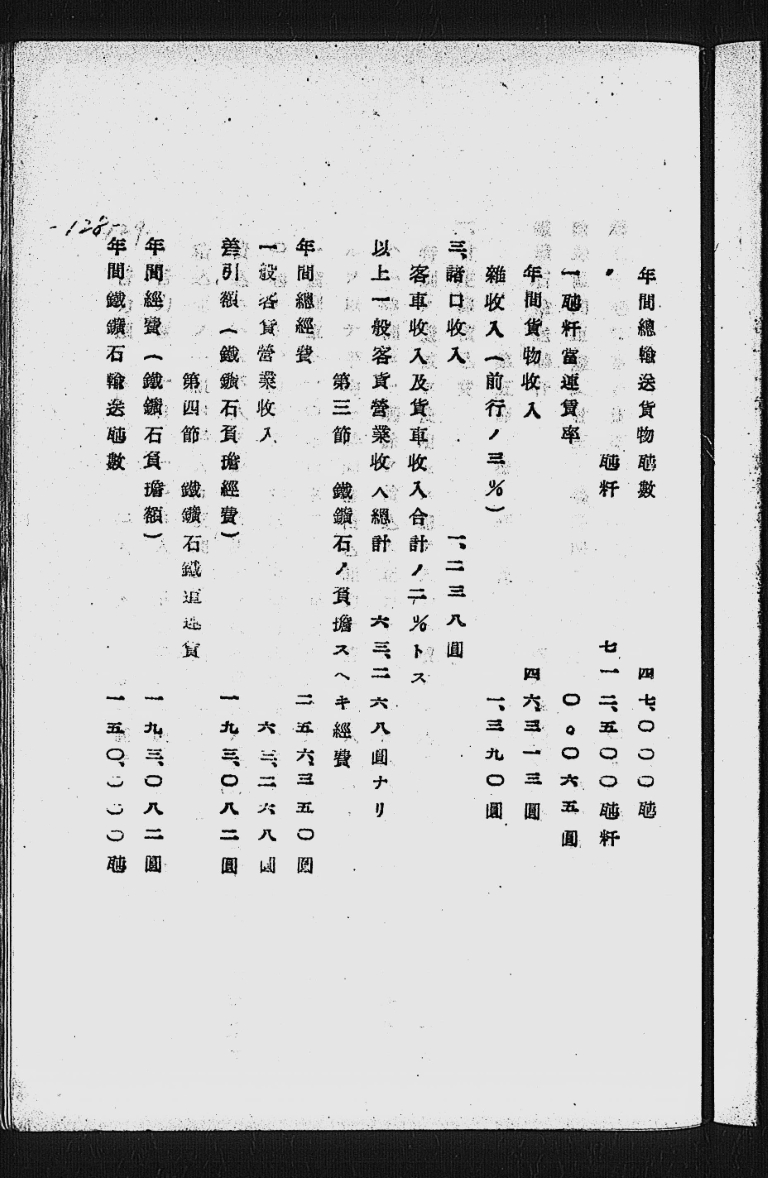 年間總輸送貨物瓲數 四七、〇〇〇瓲
〃 瓲粁 七一二、五〇〇瓲粁
一瓲粁當運賃率 〇。〇六五圓
年間貨物收入 四六、三一三圓
雜收入(前行ノ三%) 一、三九〇圓
三、諸口收入 一、二三八圓
客車收入及貨車收入合計ノ二%トス
以上一般客貨營業收入總計 六三、二六八圓ナリ
第三節 鐵鑛石ノ負擔スヘキ經費
年間總經費 二五六、三五〇圓
一般客貨營業收入 六三、二六八圓
差引額(鐵鑛石負擔經費) 一九三、〇八二圓
第四節 鐵鑛石鐵道運賃
年間經費(鐵鑛石負擔額) 一九三、〇八二圓
年間鐵鑛石輸送瓲數 一五〇、〇〇〇瓲
-128-